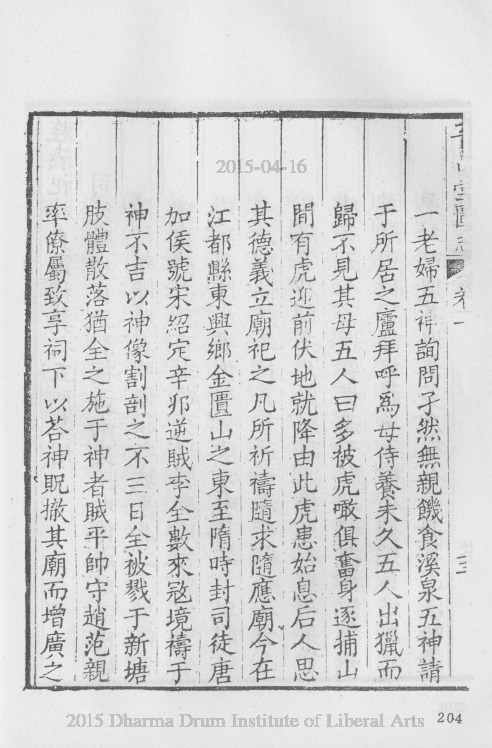 2015-04-16
卷一
三
一老婦五神詢問孑然無親饑食溪泉五神請
于所居之廬拜呼爲母侍養未久五人出獵而
歸不見其母五人曰多被虎噉俱奮身逐捕山
間有虎迎前伏地就降由此虎患始息后人思
其德義立廟祀之凡所祈禱隨求隨應廟今在
江都縣東興鄉金匱山之東至隋時封司徒唐
加侯號宋紹定辛卯逆賊李全數來寇境禱于
神不吉以神像割剖之不三日全被戮于新塘
肢體散落猶全之施于神者賊平帥守趙范親
率僚屬致享祠下以荅神貺撤其廟而增廣之
2015 Dharma Drum Institute of Liberal Arts
204